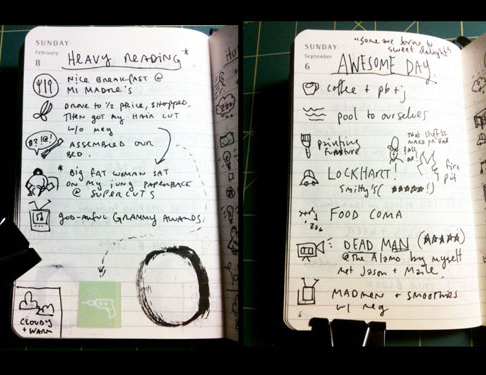 SUNDAY
February
8
HEAVY READING *
NICE BREAKFAST @
MI MADRE'S
DROVE TO 1/2 PRICE, SHOPPED,
THEN GOT MY HAIR CUT
W/O MEG
@?!@!
ASSEMBLED OUR
BED.
* BIG FAT WOMAN SAT
ON MY JUNG PAPERBACK
@ SUPERCUTS
GOD-AWFUL GRAMMY AWARDS.
CLOUDY
+ WARM
"some are born to
sweet delight"
SUNDAY
September
6
AWESOME DAY
coffee + pb + j
pool to ourselves
painting
furniture
that stuff'll
make
fall
fire
pit
LOCKHART!
Smitty's (★★★★★!)
FOOD COMA
DEAD MAN (★★★★★)
@ the Alamo by myself
met Jason +
MADMEN + SMOOTHIES
w/ meg